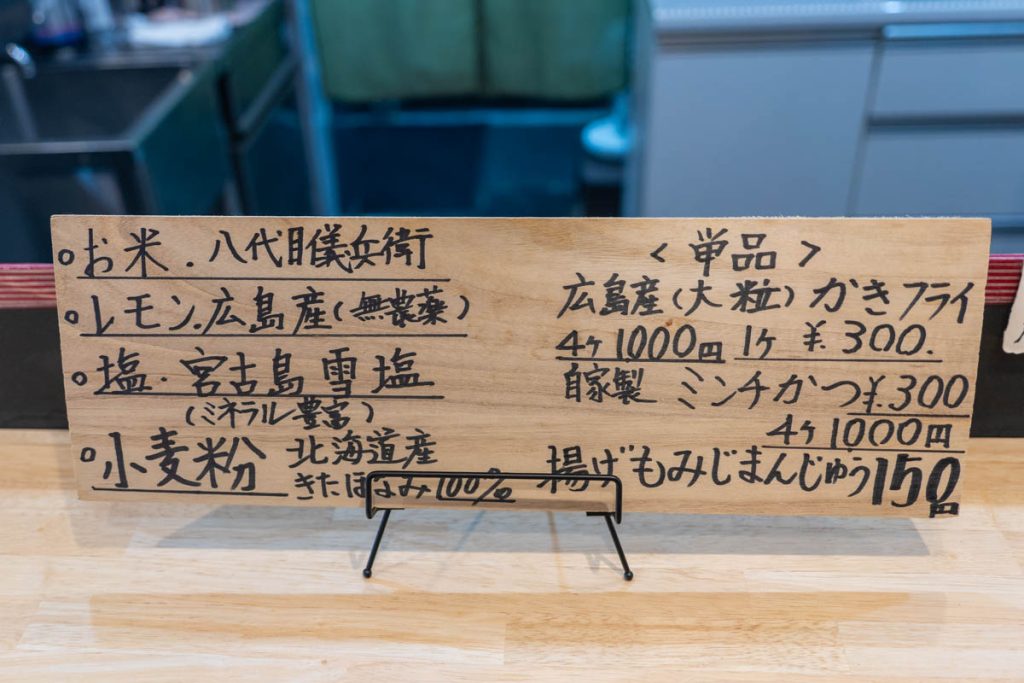 お米.八代目儀兵衛
レモン.広島産(無農薬)
塩.宮古島雪塩
(ミネラル豊富)
小麦粉 北海道産
きたほなみ100%
<単品>
広島産(大粒)かきフライ
4ヶ1000円 1ヶ¥.300.
自家製 ミンチかつ¥.300
4ヶ1000円
揚げもみじまんじゅう150円